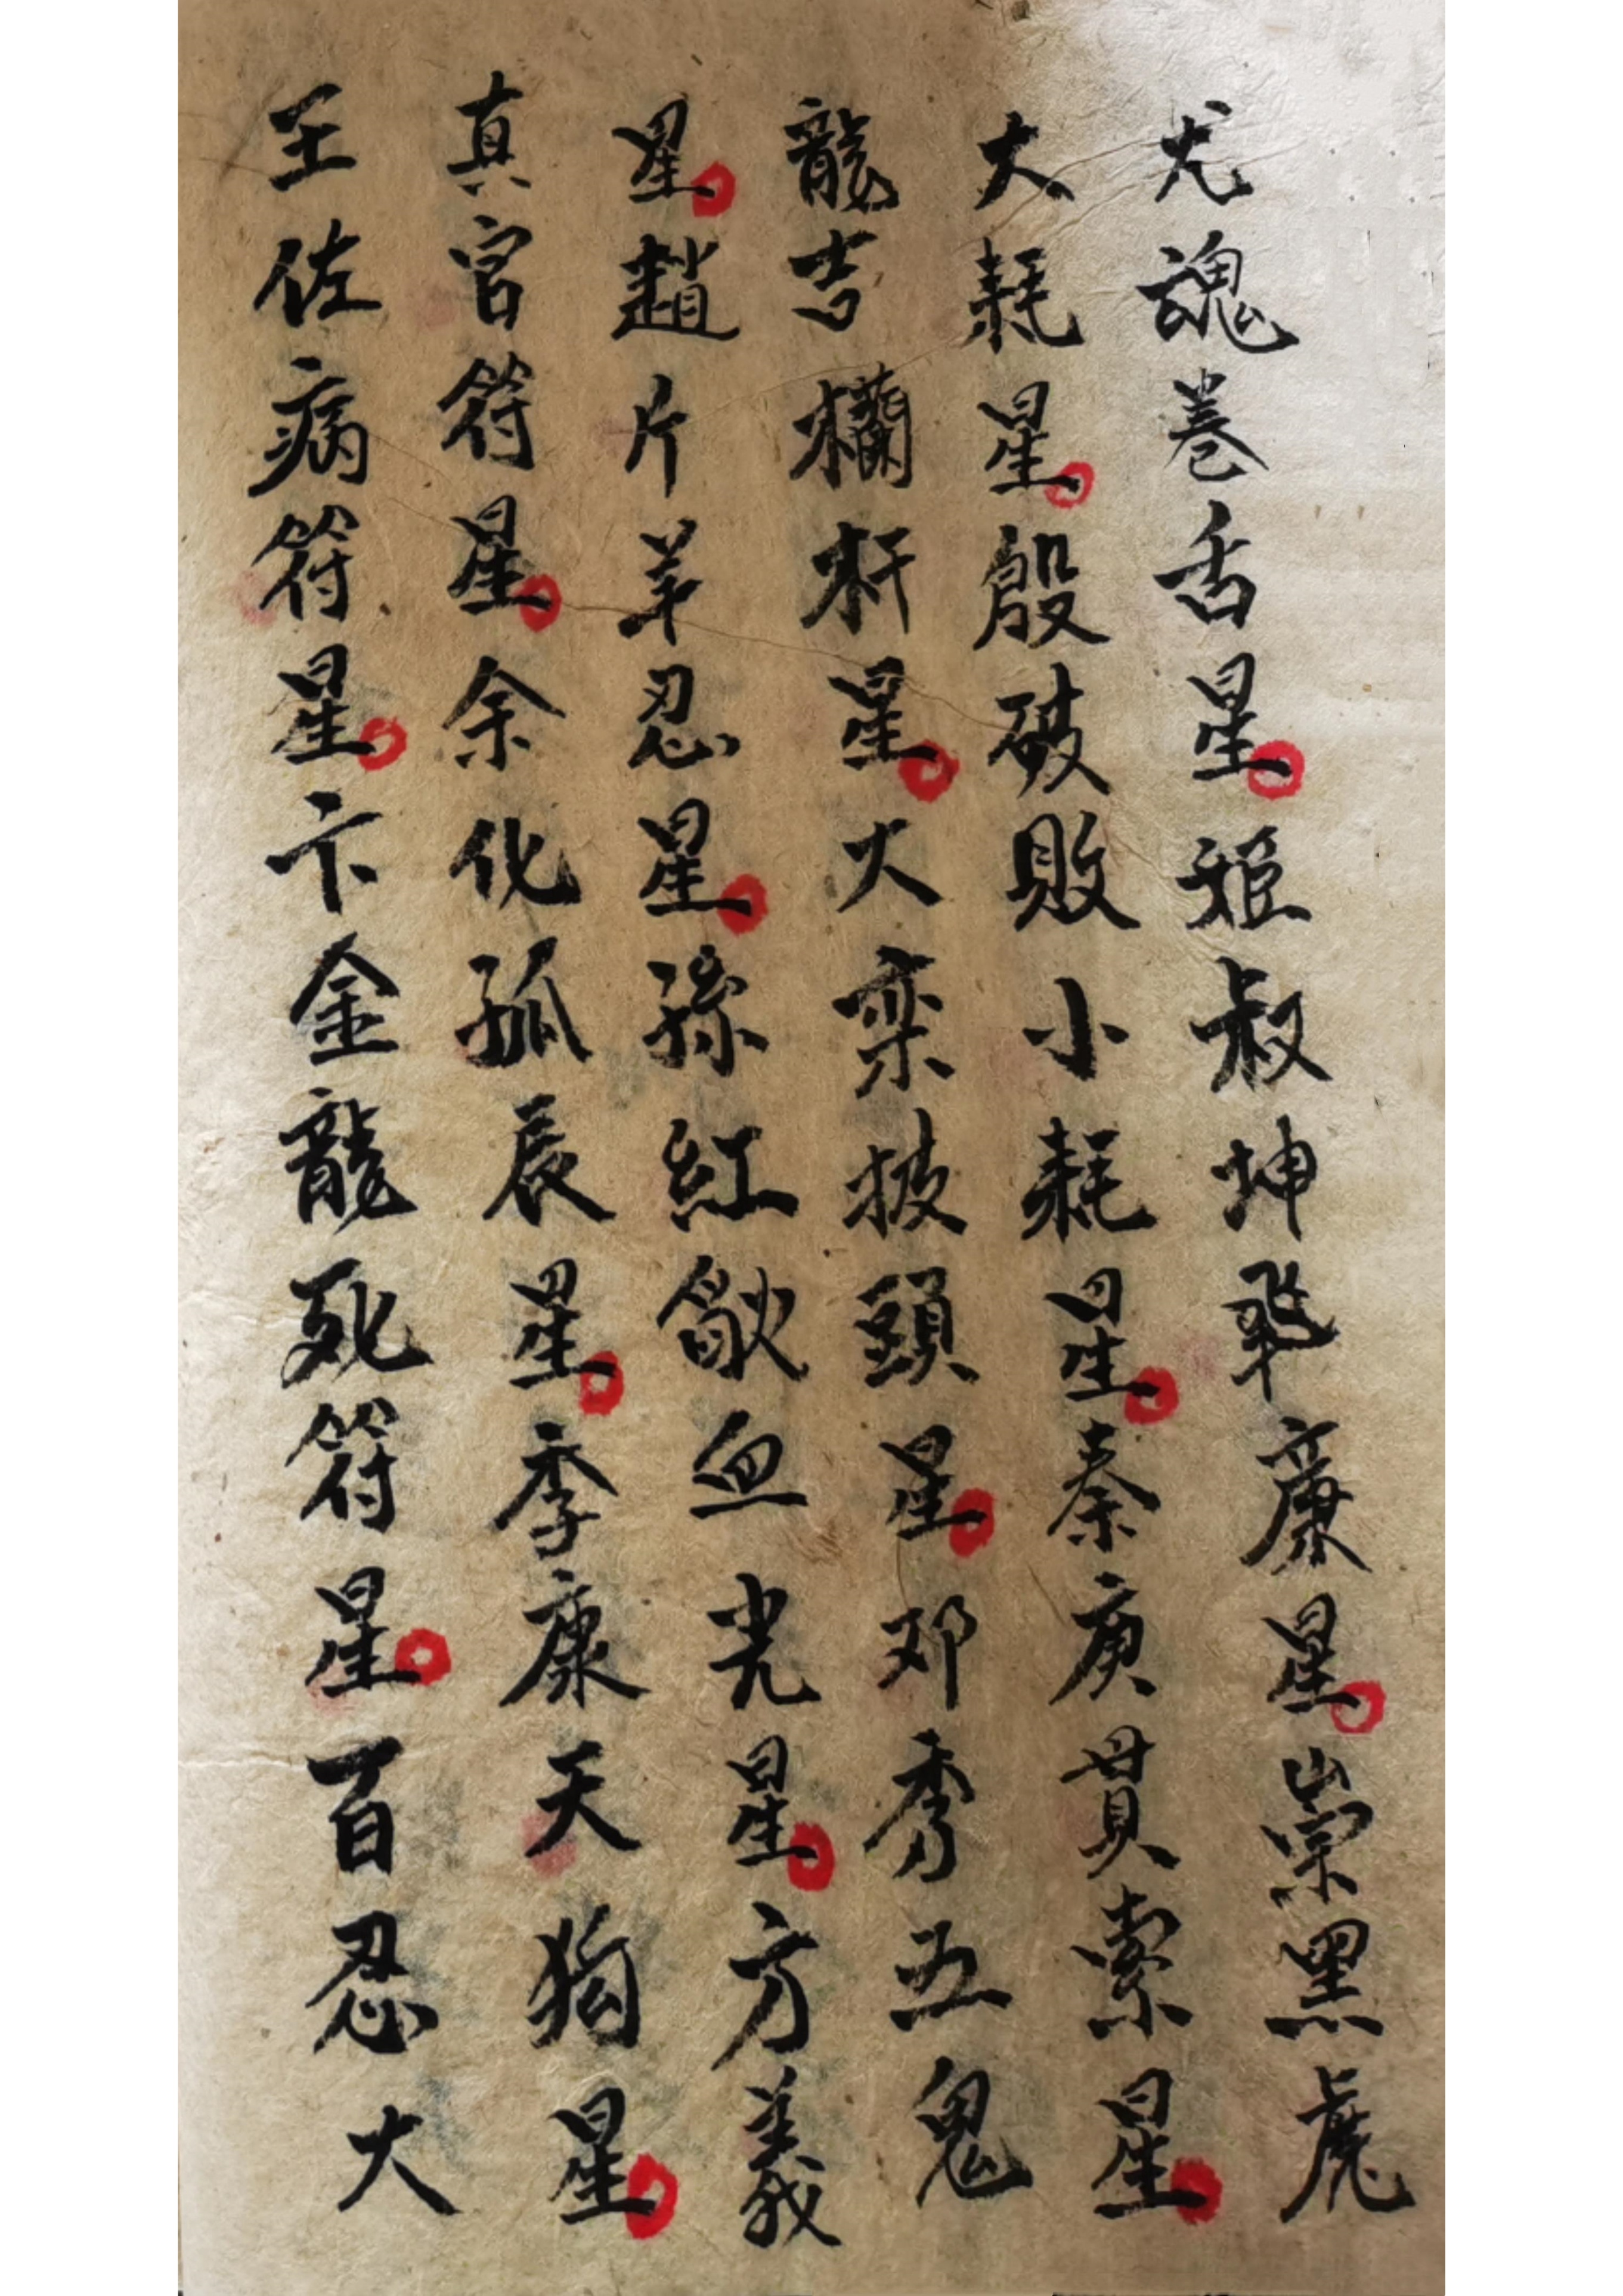 尤魂卷舌星姬叔坤飛廉星崇黑虎
大耗星殷破敗小耗星秦庚貫索星
龍吉欄杆星大栾披頭星邓秀五鬼
星趙片羊忍星孫紅歛血光星方義
真官符星余化孤辰星季康天狗星
王佐病符星卞金龍死符星百忍大